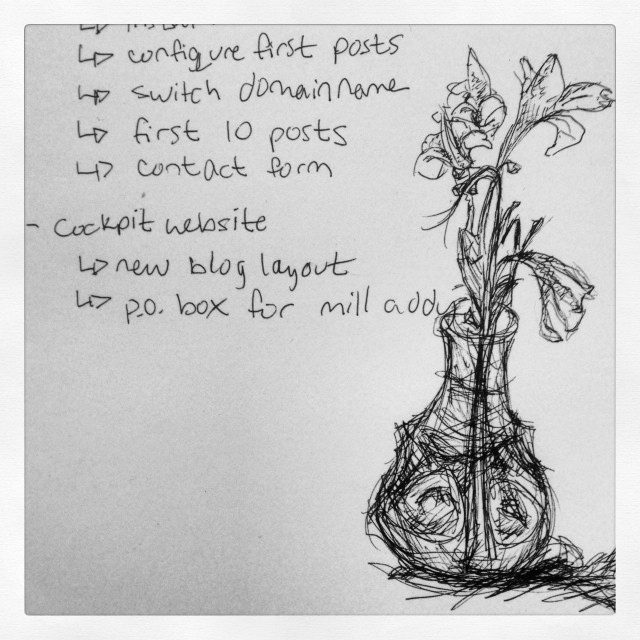 ↳ configure first posts
↳ switch domain name
↳ first 10 posts
↳ contact form
- cockpit website
↳ new blog layout
↳ p.o. box for mill addy